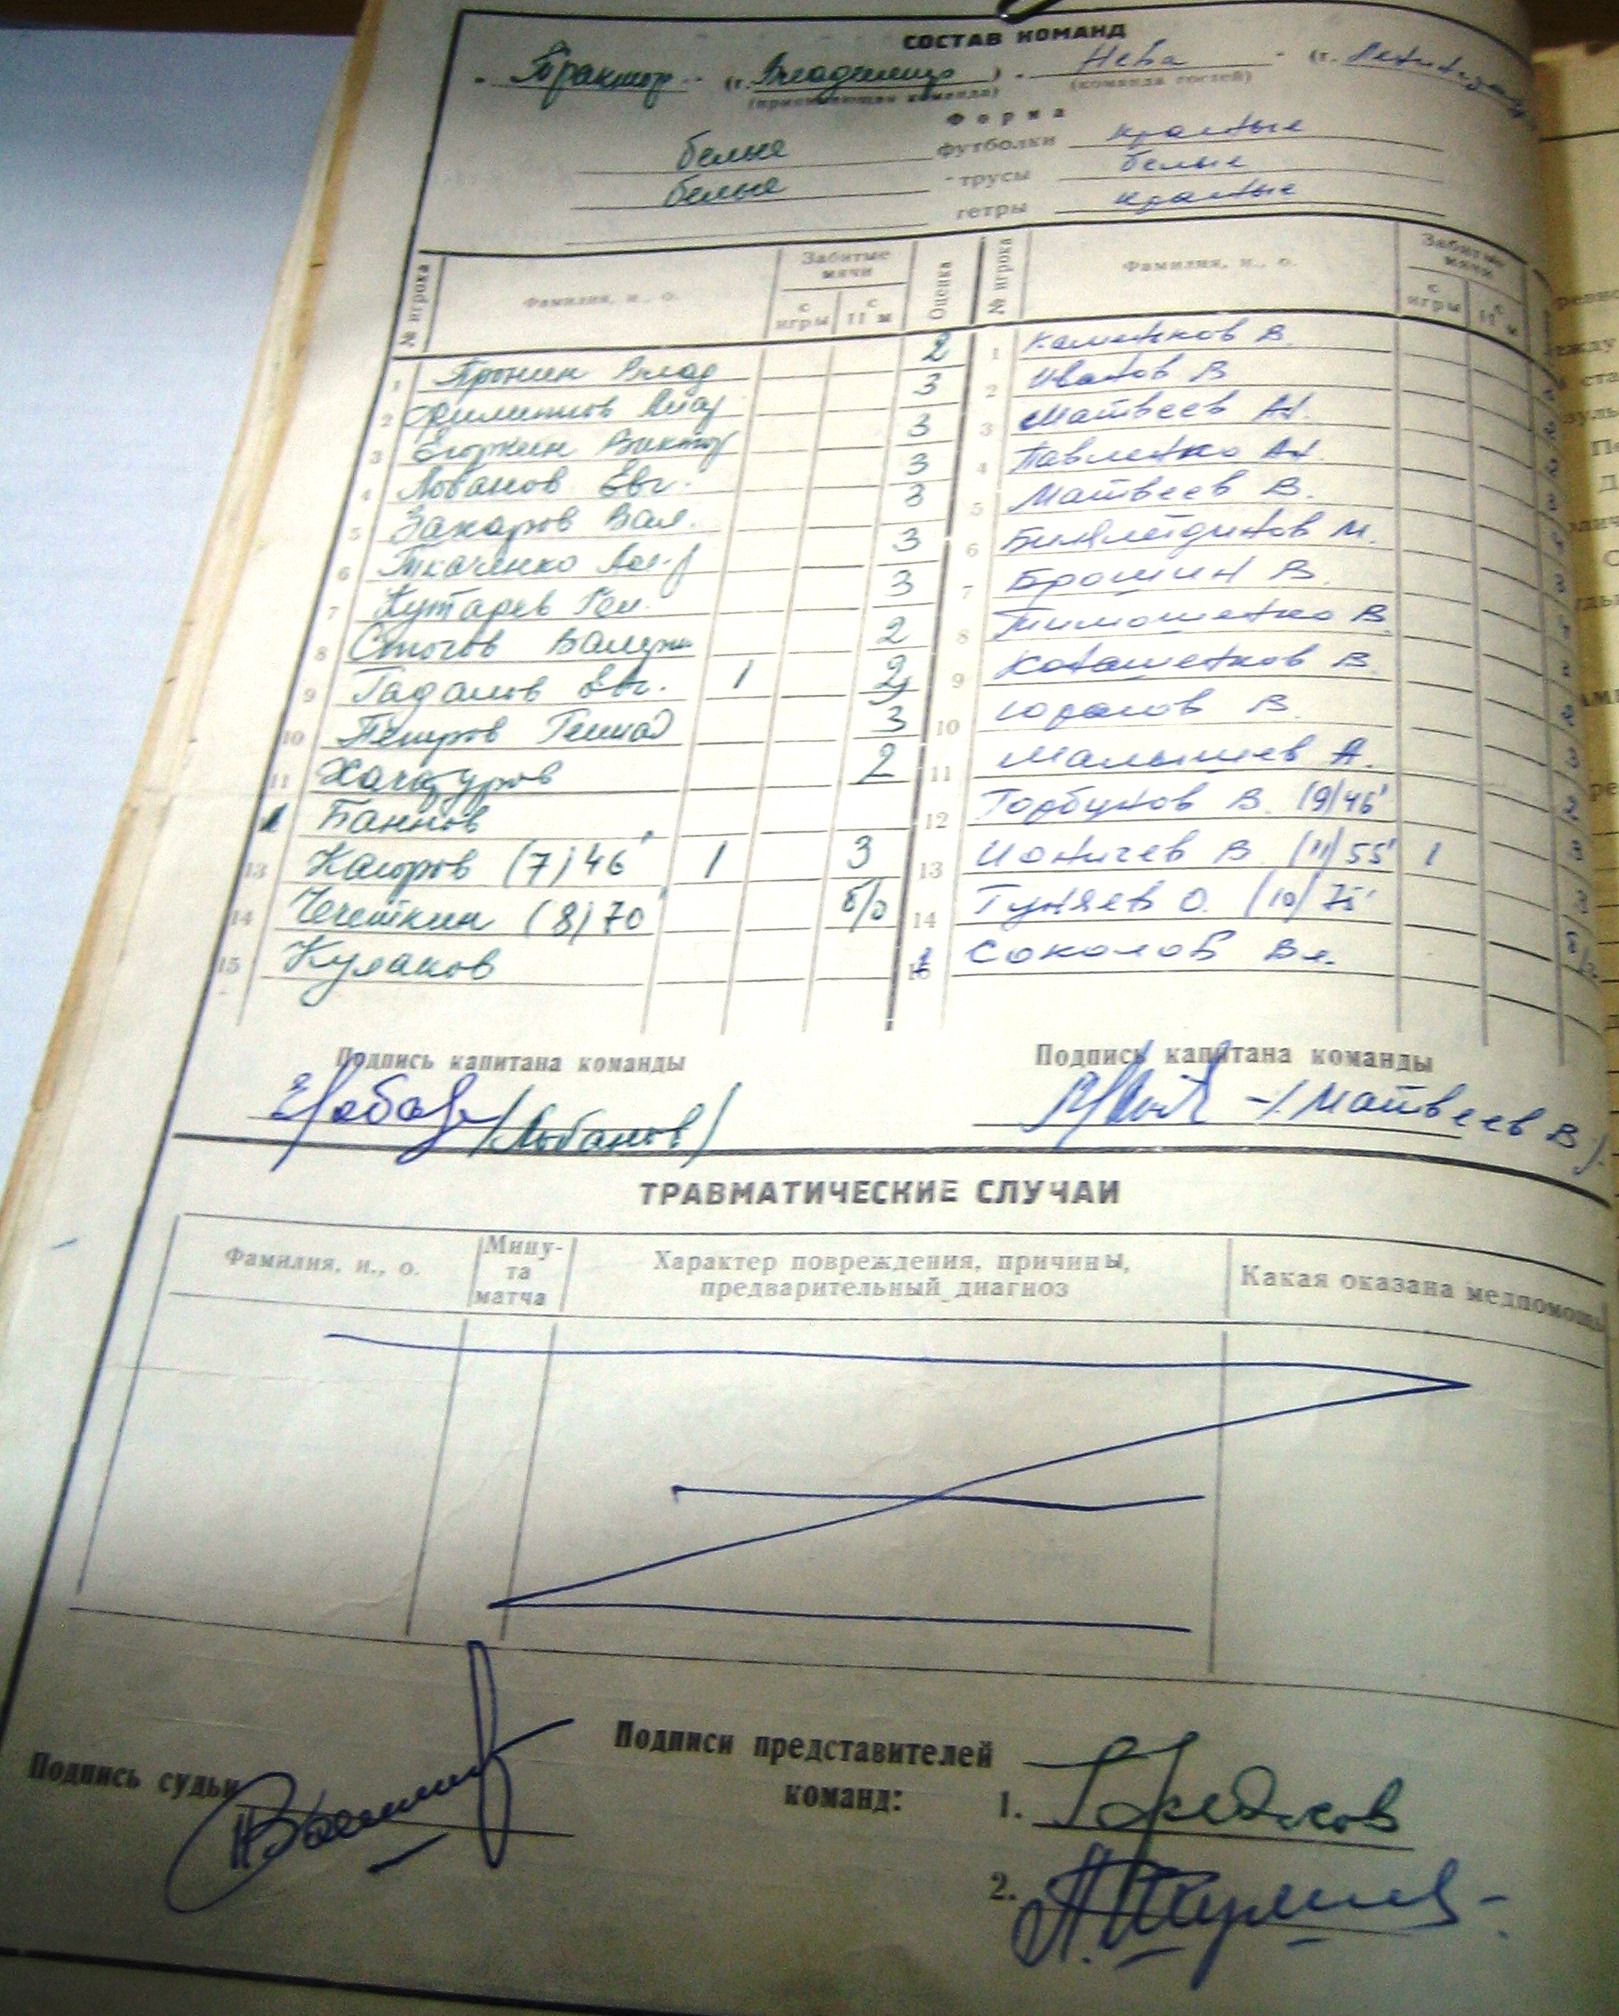 СОСТАВ КОМАНД
Трактор (г. Владимир) Нева (г.
(принимающая команда) (команда гостей)
Форма
белые футболки красные
белые трусы белые
гетры красные
№ игрока Фамилия, и., о. Забитые мячи с игры с 11 м Оценка № игрока Фамилия, и., о. Забитые мячи с игры с 11 м
1 Пронин Влад 2 1 Каменков В.
2 Филиппов 3 2 Иванов В
3 Егоркин Виктор 3 3 Матвеев Ан.
4 Лобанов Евг. 3 4 Павленко Ан.
5 Захаров Вал. 3 5 Матвеев В.
6 Ткаченко 3 6 Билялетдинов М.
7 Кутарев Ген. 3 7 Брошин В.
8 Стогов Валерий 2 8 Тимошенко В.
9 Гадалов Евг. 1 2 9 Коташенков В.
10 Петров Геннад 3 10 Юралов В.
11 Хачатуров 2 11 Малышев А.
1 Баннов 12 Горбунов В. (9) 46'
13 Кагоров (7) 46' 1 3 13 Ионичев В. (11) 55' 1
14 Чечеткин (8) 70' б/о 14 Гуняев О. (10) 75'
15 Кулаков 1 Соколов Вл.
Подпись капитана команды Подпись капитана команды
/Лобанов/ /Матвеев В/.
ТРАВМАТИЧЕСКИЕ СЛУЧАИ
Фамилия, и., о. Минута матча Характер повреждения, причины, предварительный диагноз Какая оказана медпомощь
Подпись судьи
Подписи представителей
команд: 1.
2.